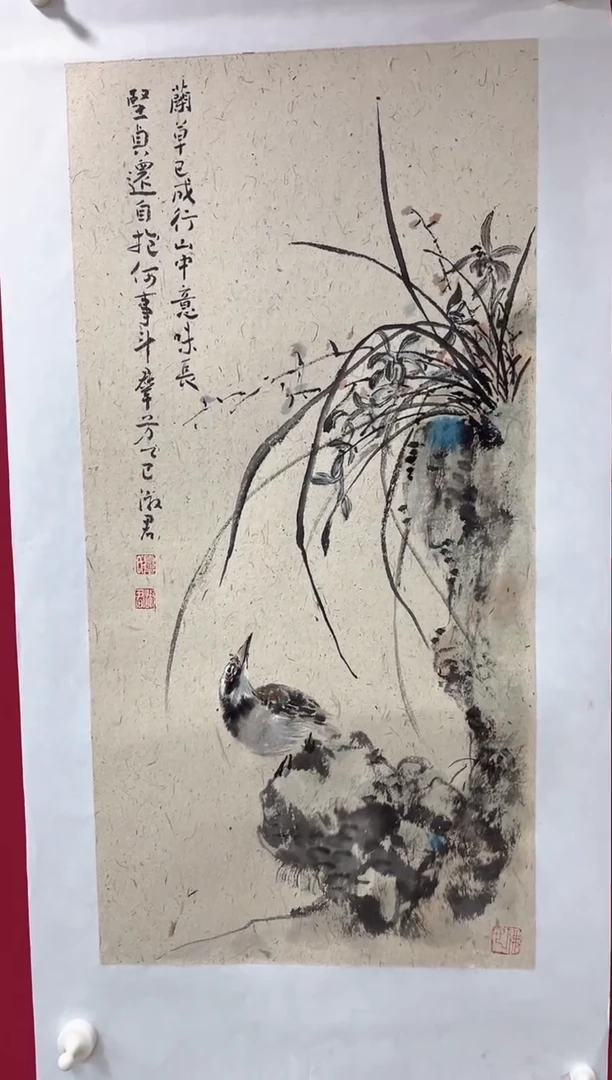 蘭草已成行山中意味長
堅貞還自抱何事斗羣芳乙巳君